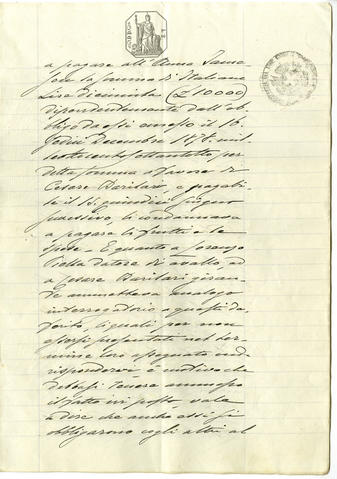 a pagare all'Anna
la somma d'Italiane
Lire Diecimila (£ 10000)
dipendentemente dall'ob-
bligo da essi emesso il 16.
sedici Decembre 1878. mil-
leottocento settantotto per
detta somma a favore di
Cesare Barilari e pagabi-
le il 15. quindici Giugno
successivo, li condannava
a pagare li frutti e le
spese. E quanto a Lorenzo
Biella datore di avallo, ed
a Cesare Barilari giran-
te ammetteva analogo
interrogatorio a questi de-
ferito, li quali per non
essersi presentati nel ter-
mine loro assegnato onde
rispondervi è motivo che
debbasi tenere ammesso
il fatto ivi posto, vale
a dire che anche essi si
obbligarono cogli altri al